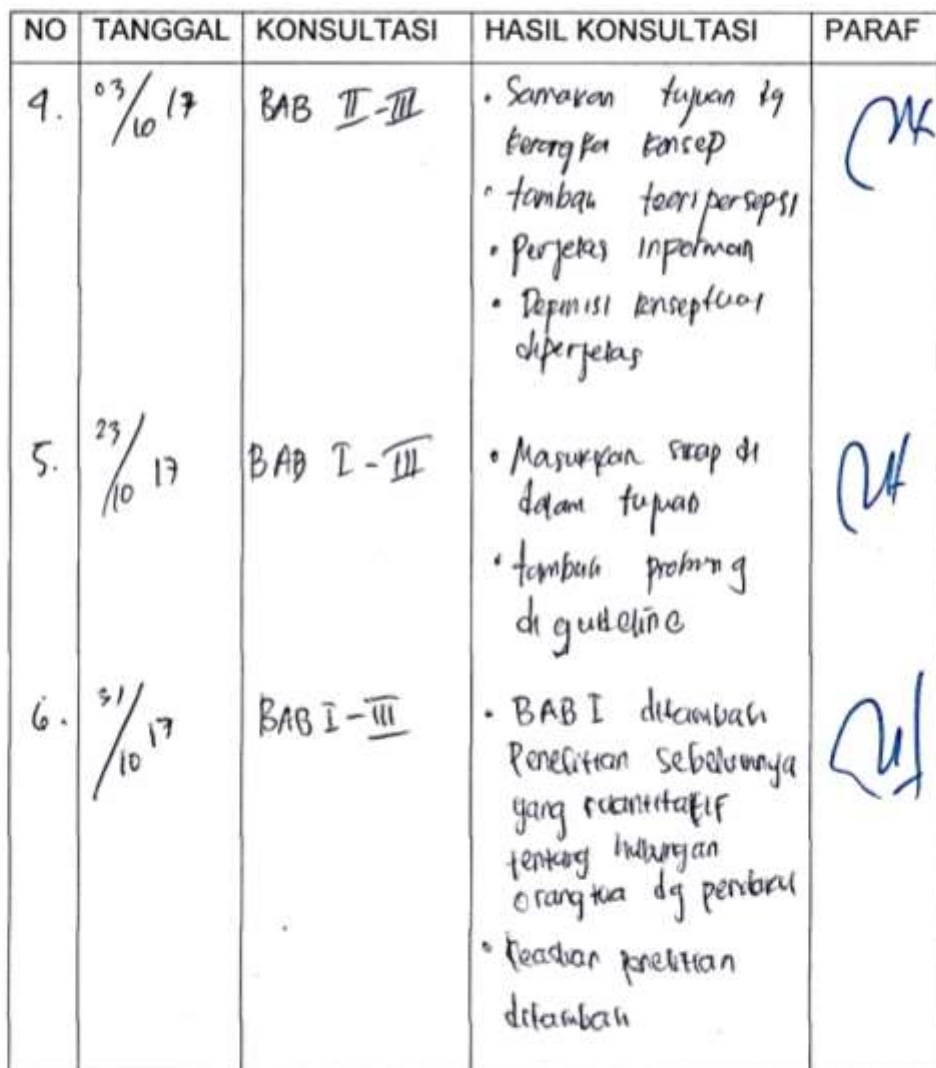 NO TANGGAL KONSULTASI HASIL KONSULTASI PARAF
4. 03/10 17 BAB II-III • Samakan tujuan dg
kerangka konsep
• tambah teori persepsi
• Perjelas informan
• Depinisi konseptual
diperjelas
5. 23/10 17 BAB I-III • Masukkan sikap di
dalam tujuan
• tambah probing
di guideline
6. 31/10 17 BAB I-III • BAB I ditambah
Penelitian sebelumnya
yang kuantitatif
tentang hubungan
orang tua dg
• Keaslian penelitian
ditambah